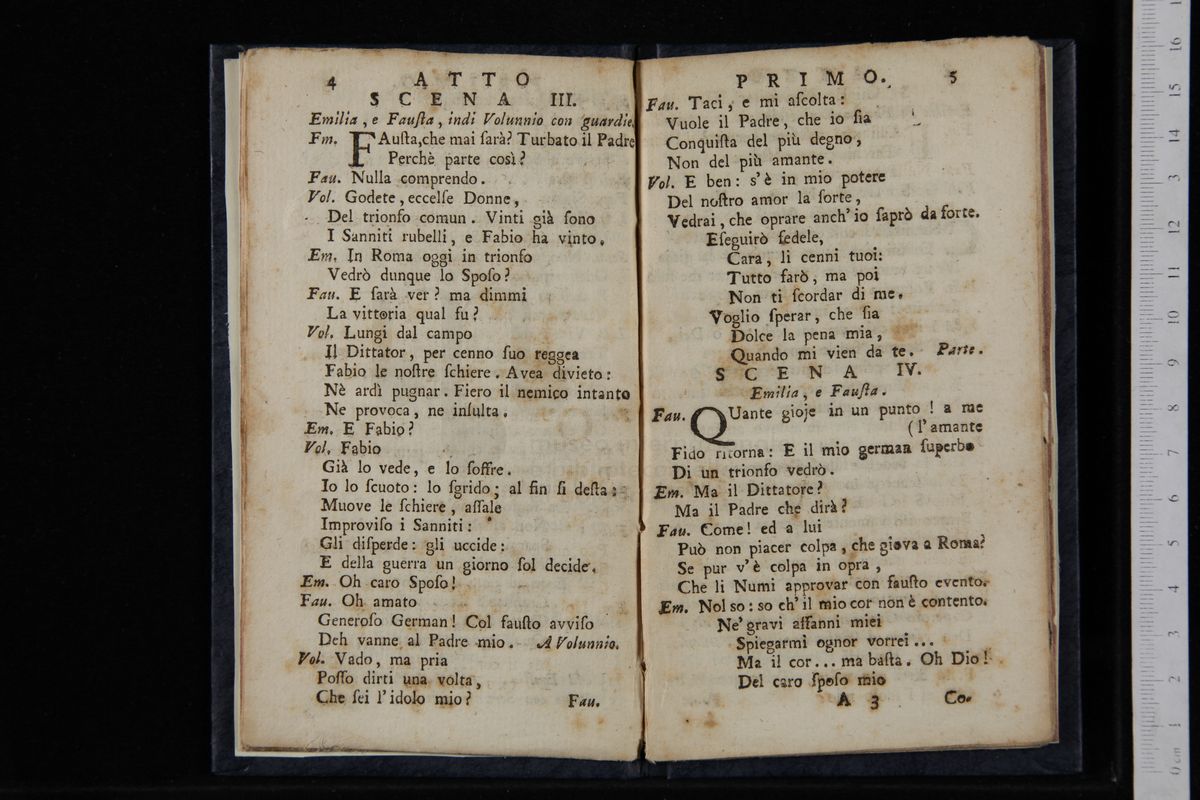 4 ATTO
SCENA III.
Emilia, e Fauſta, indi Volunnio con guardie.
Fm. FAuſta, che mai ſarà? Turbato il Padre
Perchè parte così?
Fau. Nulla comprendo.
Vol. Godete, eccelſe Donne,
Del trionfo comun. Vinti già ſono
I Sanniti rubelli, e Fabio ha vinto.
Em. In Roma oggi in trionfo
Vedrò dunque lo Spoſo?
Fau. E ſarà ver? ma dimmi
La vittoria qual fu?
Vol. Lungi dal campo
Il Dittator, per cenno ſuo reggea
Fabio le noſtre ſchiere. Avea divieto:
Nè ardì pugnar. Fiero il nemico intanto
Ne provoca, ne inſulta.
Em. E Fabio?
Vol. Fabio
Già lo vede, e lo ſoffre.
Io lo ſcuoto: lo ſgrido; al fin ſi deſta:
Muove le ſchiere, aſſale
Improviſo i Sanniti:
Gli diſperde: gli uccide:
E della guerra un giorno ſol decide.
Em. Oh caro Spoſo!
Fau. Oh amato
Generoſo German! Col fauſto avviſo
Deh vanne al Padre mio. A Volunnio.
Vol. Vado, ma pria
Poſſo dirti una volta,
Che ſei l'idolo mio?
Fau.
PRIMO. 5
Fau. Taci, e mi aſcolta:
Vuole il Padre, che io ſia
Conquiſta del più degno,
Non del più amante.
Vol. E ben: s'è in mio potere
Del noſtro amor la ſorte,
Vedrai, che oprare anch'io ſaprò da forte.
Eſeguirò fedele,
Cara, li cenni tuoi:
Tutto farò, ma poi
Non ti ſcordar di me.
Voglio ſperar, che ſia
Dolce la pena mia,
Quando mi vien da te. Parte.
SCENA IV.
Emilia, e Fauſta.
Fau. QUante gioje in un punto! a me
(l'amante
Fido ritorna: E il mio german ſuperbo
Di un trionfo vedrò.
Em. Ma il Dittatore?
Ma il Padre che dirà?
Fau. Come! ed a lui
Può non piacer colpa, che giova a Roma?
Se pur v'è colpa in opra,
Che li Numi approvar con fauſto evento.
Em. Nol so: so ch'il mio cor non è contento.
Ne' gravi aſſanni miei
Spiegarmi ognor vorrei...
Ma il cor... ma baſta. Oh Dio!
Del caro ſpoſo mio
A 3 Co.
0 cm 1 2 3 4 5 6 7 8 9 10 11 12 13 14 15 16